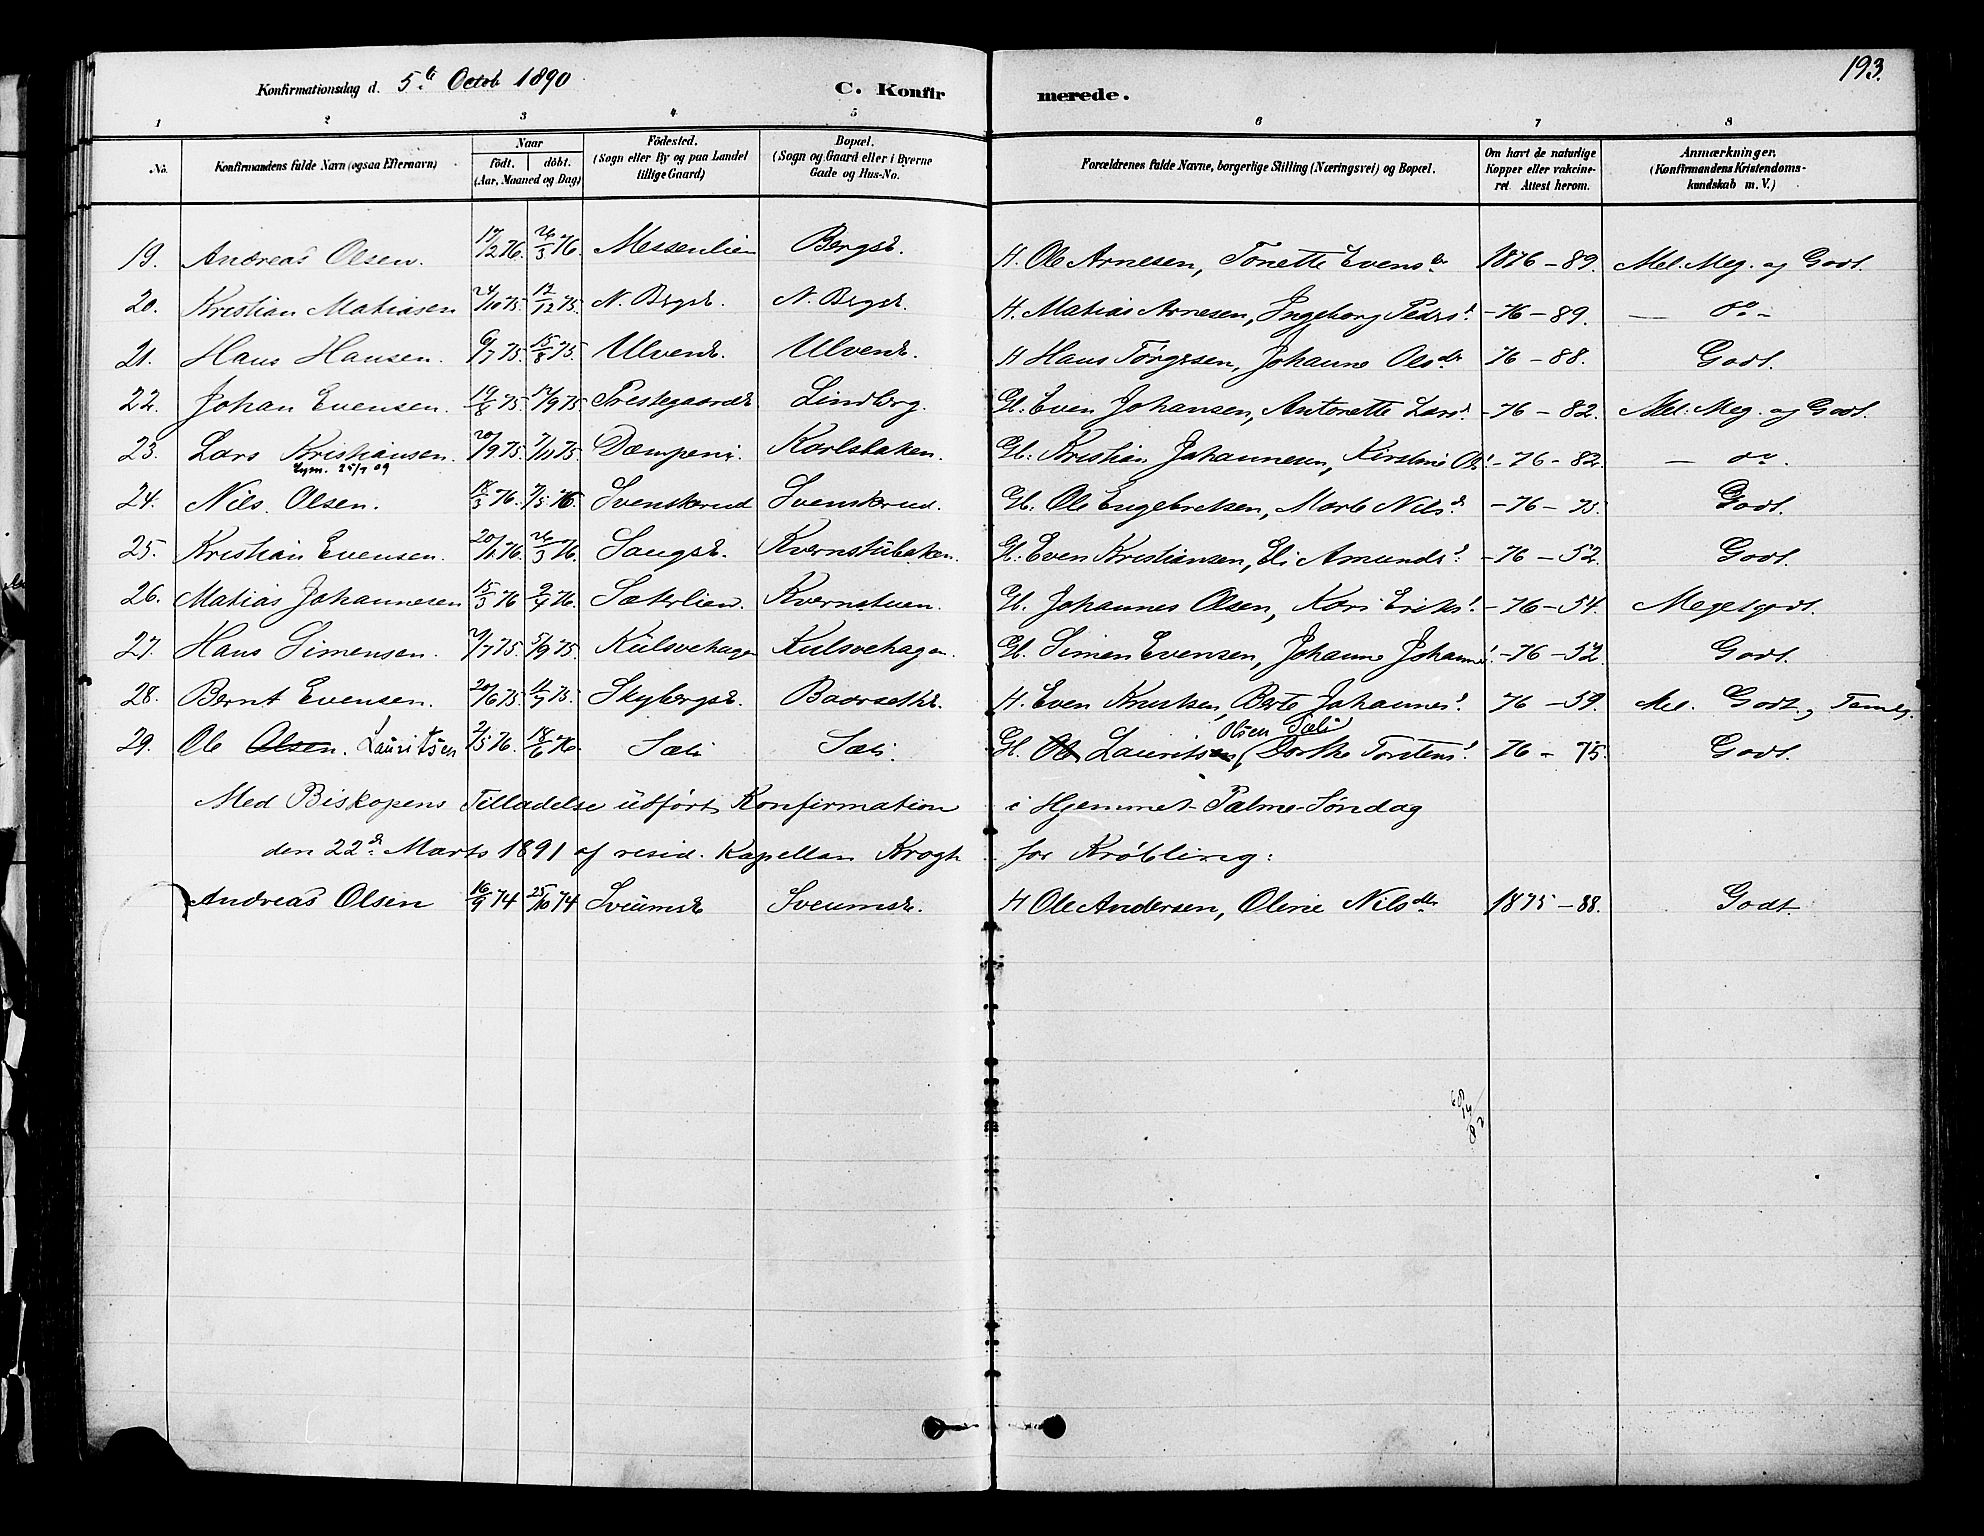 193.
Konfirmationsdag d. 5te Octob 1890 C. Konfir merede.
1 2 3 4 5 6 7 8
No. Konfirmandens fulde Navn (ogsaa Efternavn) Naar født. døbt. (Aar, Maaned og Dag) Fødested. (Sogn eller By og paa Landet tillige Gaard) Bopæl. (Sogn og Gaard eller i Byerne Gade og Hus-No. Forældrenes fulde Navne, borgerlige Stilling (Næringsvei) og Bopæl. Om havt de naturlige Kopper eller vakcineret. Attest herom. Anmærkninger. (Konfirmandens Kristendomskundskab m. V.)
19. Andreas Olsen. 17/2 76. 26/3 76. Messenlien Bergse. H. Ole Arnesen, Tonette Evensdr 1876 - 89. Mel. Meg. og Godt.
20. Kristian Matiasen 24/10 75. 12/12 75. N. Bergse. N. Bergse. H. Matias Arnesen, Ingeborg Pedersd. - 76 - 89. — do -
21. Hans Hansen. 6/7 75. 15/8 75. Ulvene. Ulvene. H Hans Törgesen, Johanne Olsdr 76 - 88. Godt.
22. Johan Evensen. 19/8 75. 12/9 75 Prestegaarde Lindberg. Gl. Even Johansen, Antonette Larsd. - 76 - 82. Mel. Meg. og Godt.
23. Lars Kristiansen. 20/9 75. 7/11 75. Dæmpeni. Karlsbaken. Gl. Kristian Johannesen, Kirstine Ols. - 76 - 82. — do.
Lym. 25/7 09
24. Nils Olsen. 18/3 76. 7/5 76. Svenskerud Svenskerud. Gl. Ole Engebretsen, Marte Nilsd. - 76 - 75. Godt.
25. Kristian Evensen. 20/1 76. 26/3 76. Saugse. Kvernstubaken. Gl. Even Kristiansen, Eli Amundsd. - 76 - 52. Godt.
26. Matias Johannesen 15/3 76 9/4 76. Sæterlien. Kvernstuen. Gl. Johannes Olsen, Kari Eriksd. - 76 - 54. Megetgodt.
27. Hans Simensen. 29/7 75. 5/9 75. Kulsvehagen Kulsvehagen. Gl. Simen Evensen, Johanne Johannesd. - 76 - 52 Godt.
28. Bernt Evensen. 20/6 75. 11/7 75. Skybergse. Baarsethe. H. Even Knutsen, Berte Johannesd. 76 - 59. Mel. Godt og Temlg.
Olsen Sæli
29. Ole Olsen. Lauritsen 2/5 76. 18/6 76. Sæli Sæli. Gl. Ole Lauritsen, Dorthe Torstensd. 76 - 75. Godt.
Med Biskopens Tilladelse udført Konfirmation i Hjemmet Palme-Søndag
den 22de Marts 1891 af resid. Kapellan Krogh for Krøbling:
Andreas Olsen 16/9 74 25/10 74 Sveumse Sveumse. H Ole Andersen, Oline Nilsdtr 1875 - 88. Godt.